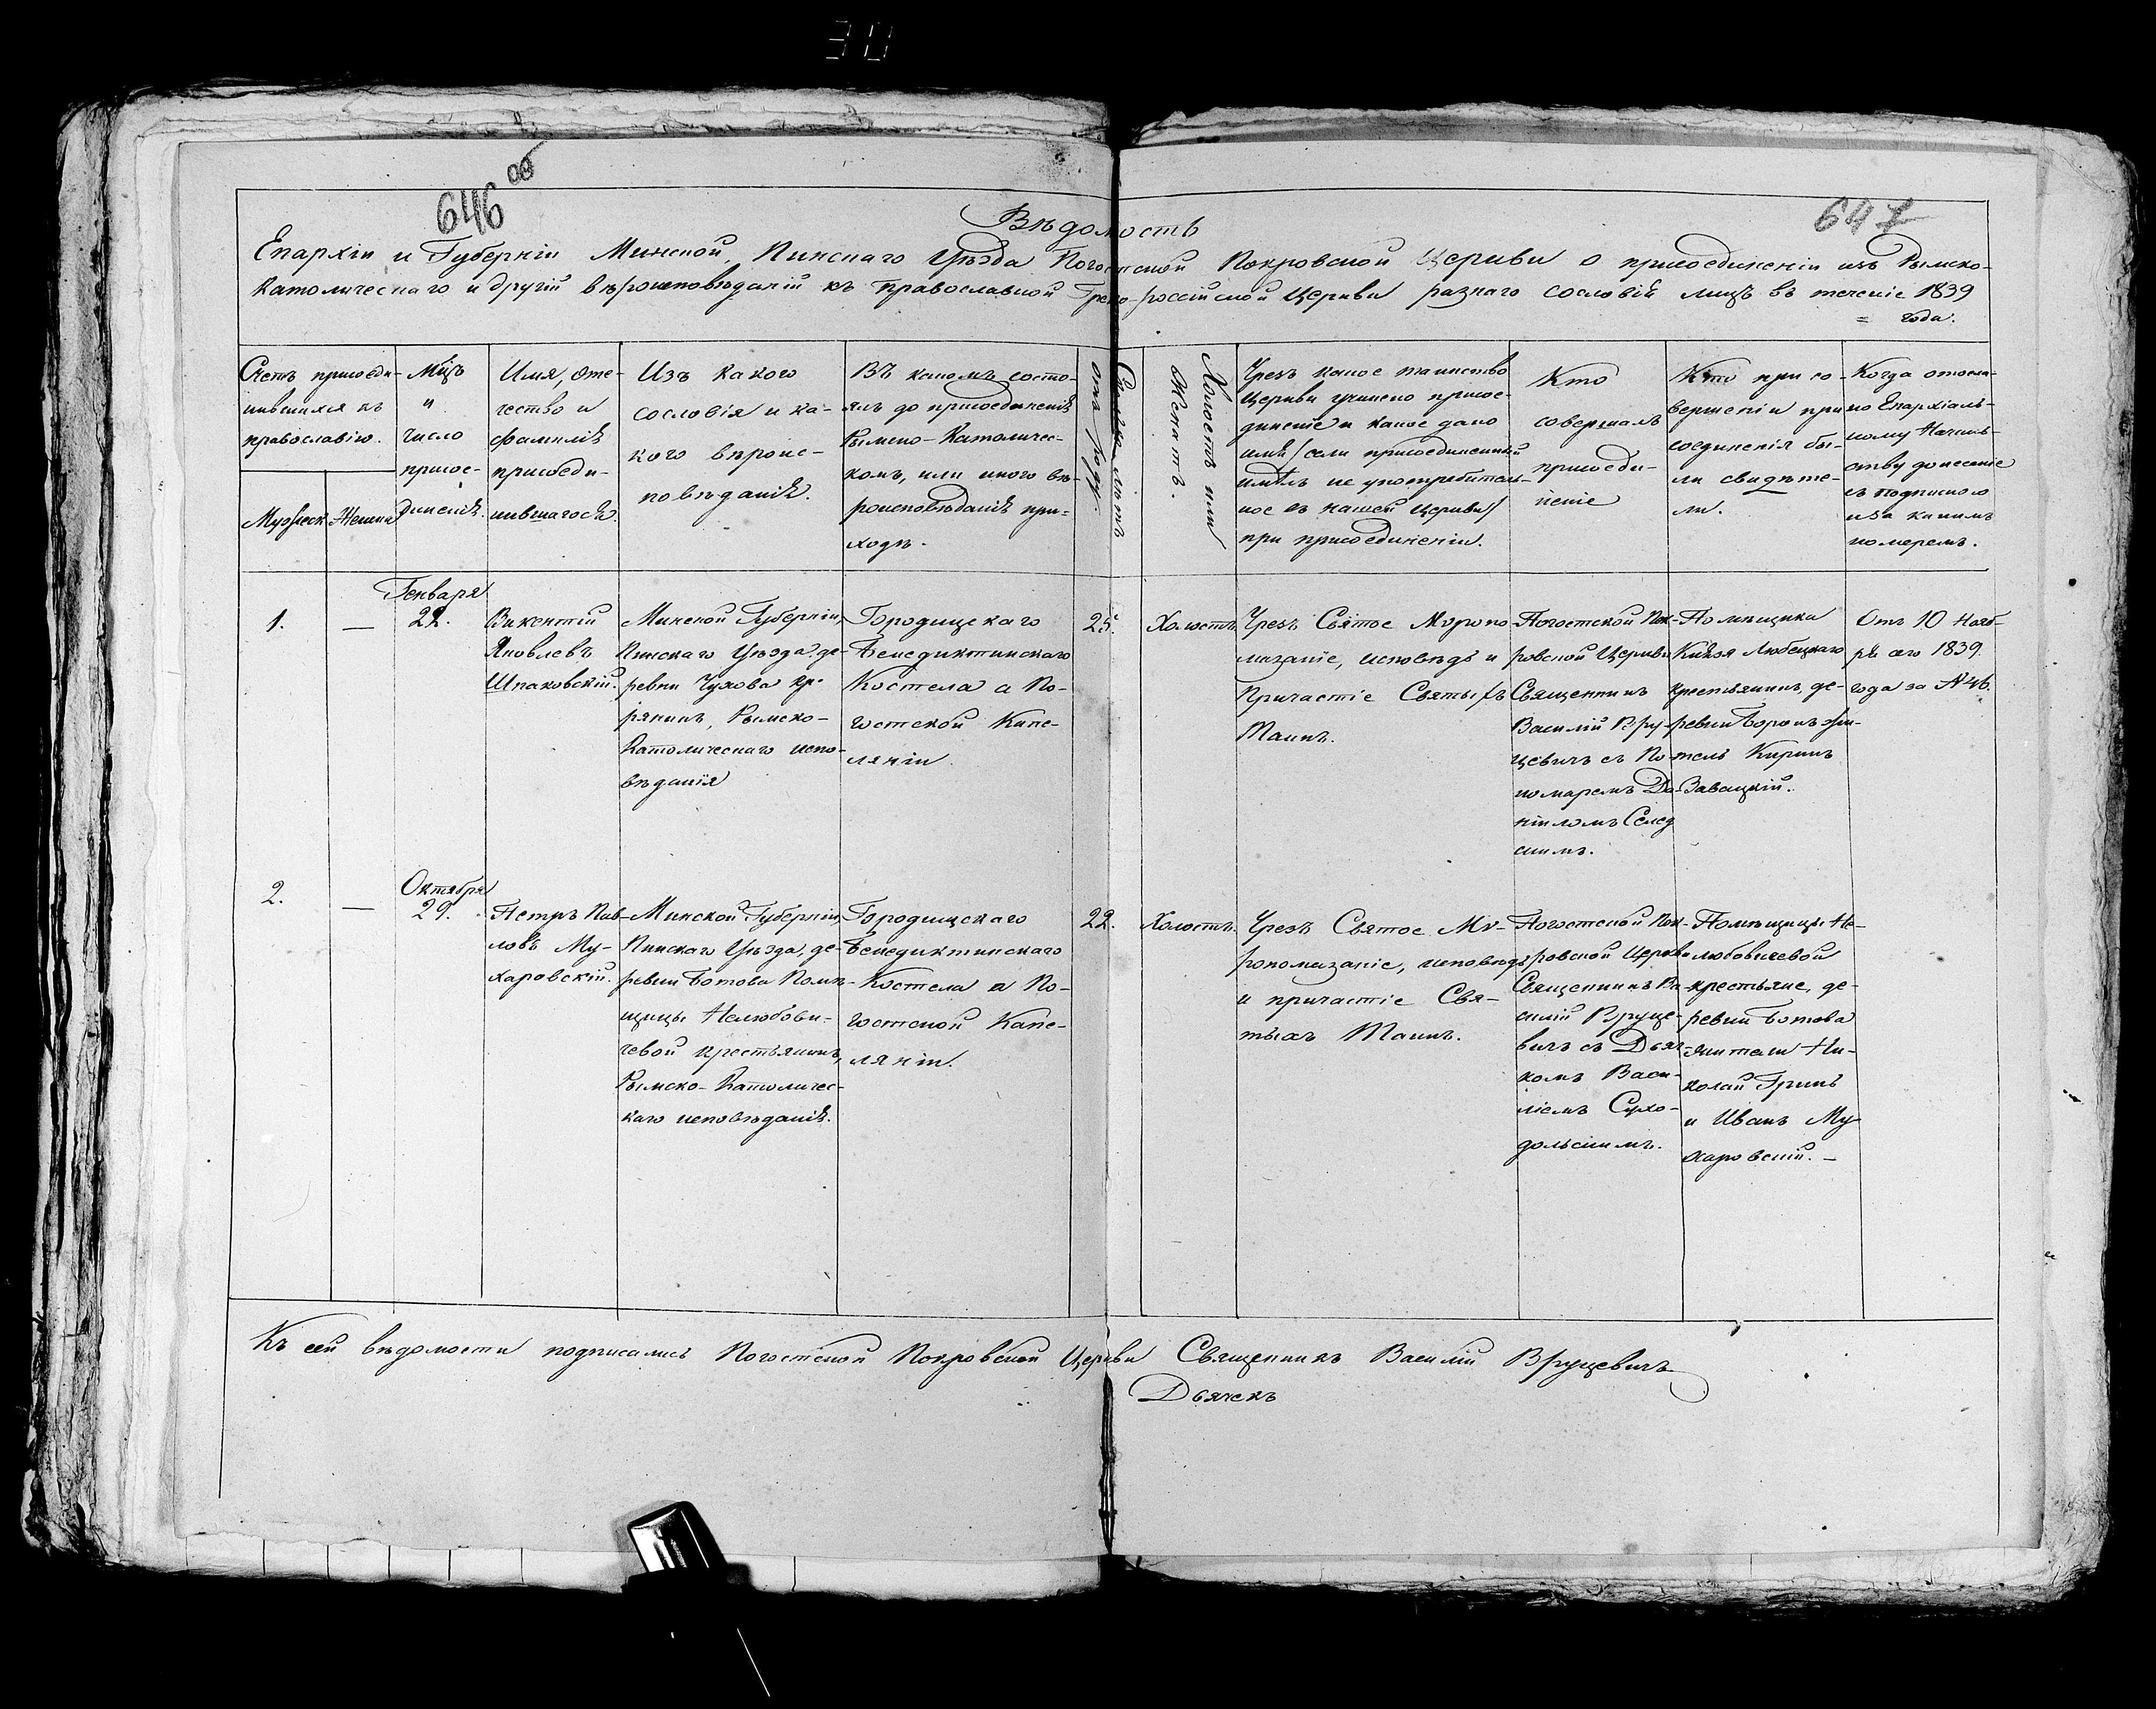 30
646 об
647
Вѣдомость
Епархіи и Губерніи Минской, Пинскаго Уѣзда Погостской Покровской Церкви о присоединеніи изъ Римско-
Католическаго и другій вѣроисповѣданій къ Православной Греко-россійской Церкви разнаго сословій лицъ въ теченіе 1839
= года.
Счетъ присоеди-
нившихся къ
православію.
Мужеск.
Женск.
Мѣцъ
и
число
присое-
диненія.
Имя, оте-
чество и
фамилія
присоеди-
нившагося.
Изъ какого
сословія и ка-
кого вѣроис-
повѣданія.
Въ какомъ состо-
ялъ до присоединенія
Римско-Католичес-
комъ, или иного вѣ-
роисповѣданія при-
ходѣ.
Сколько лѣтъ
отъ роду.
Холостъ или
Женатъ.
Чрезъ какое таинство
Церкви учинено присое-
диненіе и какое дано
имя /если присоединенный
имѣлъ не употребитель-
ное въ нашей Церкви/
при присоединеніи.
Кто
совершалъ
присоеди-
неніе
Кто при со-
вершеніи при
соединенія бы-
ли свидѣте-
ли.
Когда отосла-
но Епархіаль-
ному Началь-
ству донесеніе
съ подпискою
и за какимъ
номеромъ.
1.
—
Генваря
22.
Викентій
Яковлевъ
Шпаковскій.
Минской Губерніи,
Пинскаго Уѣзда, де-
ревни Чухова
Римско-
Католическаго испо-
вѣданія
Городищскаго
Бенедиктинскаго
Костела а По-
гостской Капе-
ляніи
25.
Холостъ.
Чрезъ Святое Мѵропо-
мазаніе, исповѣдь и
Причастіе Святыхъ
Таинъ.
Погостской Пок-
ровской Церкви
Священникъ
Василій Вру-
цевичъ съ По-
номаремъ Да-
ніиломъ
Помѣщика
Князя Любецкаго
крестьянинъ, де-
ревни Боронъ жи-
тель Киринъ
Завацкій.
Отъ 10 Нояб-
ря сего 1839.
года за №46.
2.
—
Октября
29.
Петръ Пав-
ловъ Му-
харовскій.
Минской Губерніи,
Пинскаго Уѣзда, де-
ревни Ботова Помѣ-
щицы Нелюбови-
чевой крестьянинъ,
Римско-Католичес-
каго исповѣданія.
Городищскаго
Бенедиктинскаго
Костела а По-
гостской Капе-
ляніи.
22.
Холостъ.
Чрезъ Святое Мѵ-
ропомазаніе, исповѣдь
и причастіе Свя-
тыхъ Таинъ.
Погостской Пок-
ровской Церкви
Священникъ Ва-
силій Вруце-
вичъ съ Дьяч-
комъ Васи-
ліемъ Сухо-
дольскимъ.
Помѣщицы Не-
любовичевой
крестьяне, де-
ревни Ботова
жители Ни-
колай Гринь
и Иванъ Му-
харовскій. —
Къ сей вѣдомости подписались Погостской Покровской Церкви Священникъ Василій Вруцевичъ
Дьячекъ